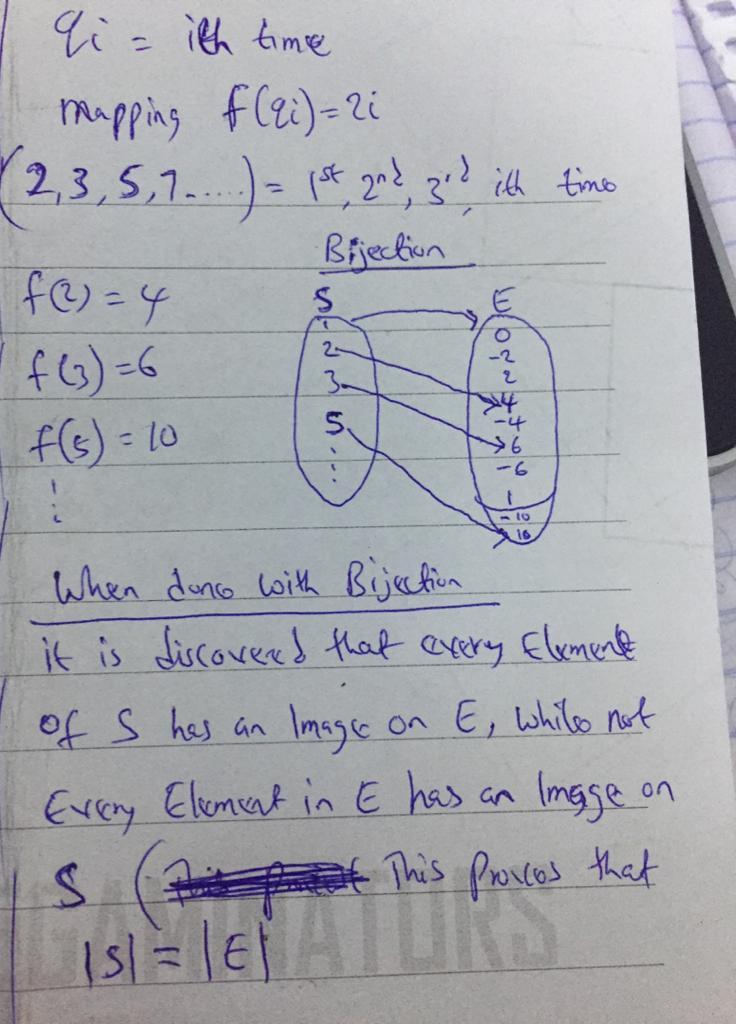 qi = ith time
mapping f(qi)=2i
(2,3,5,7.....) = 1st, 2nd, 3rd, ith time
Bijection
f(2) = 4
f(3) = 6
f(5) = 10
S E
2
3
5
0
-2
2
4
-4
6
-6
-10
10
When done with Bijection
it is discovered that every Element
of S has an Image on E, while not
Every Element in E has an Image on
S ( This proves that
|S| = |E|
GAMINATORS